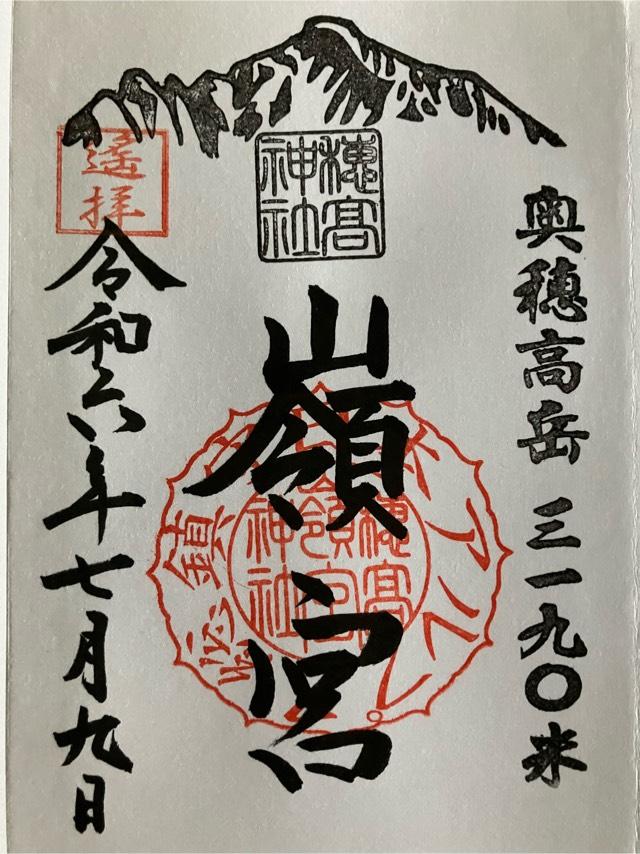 奥穂高岳 三一九〇米
穂高
神社
嶺宮
穂高
嶺宮
神社
遙拝
令和六年七月九日